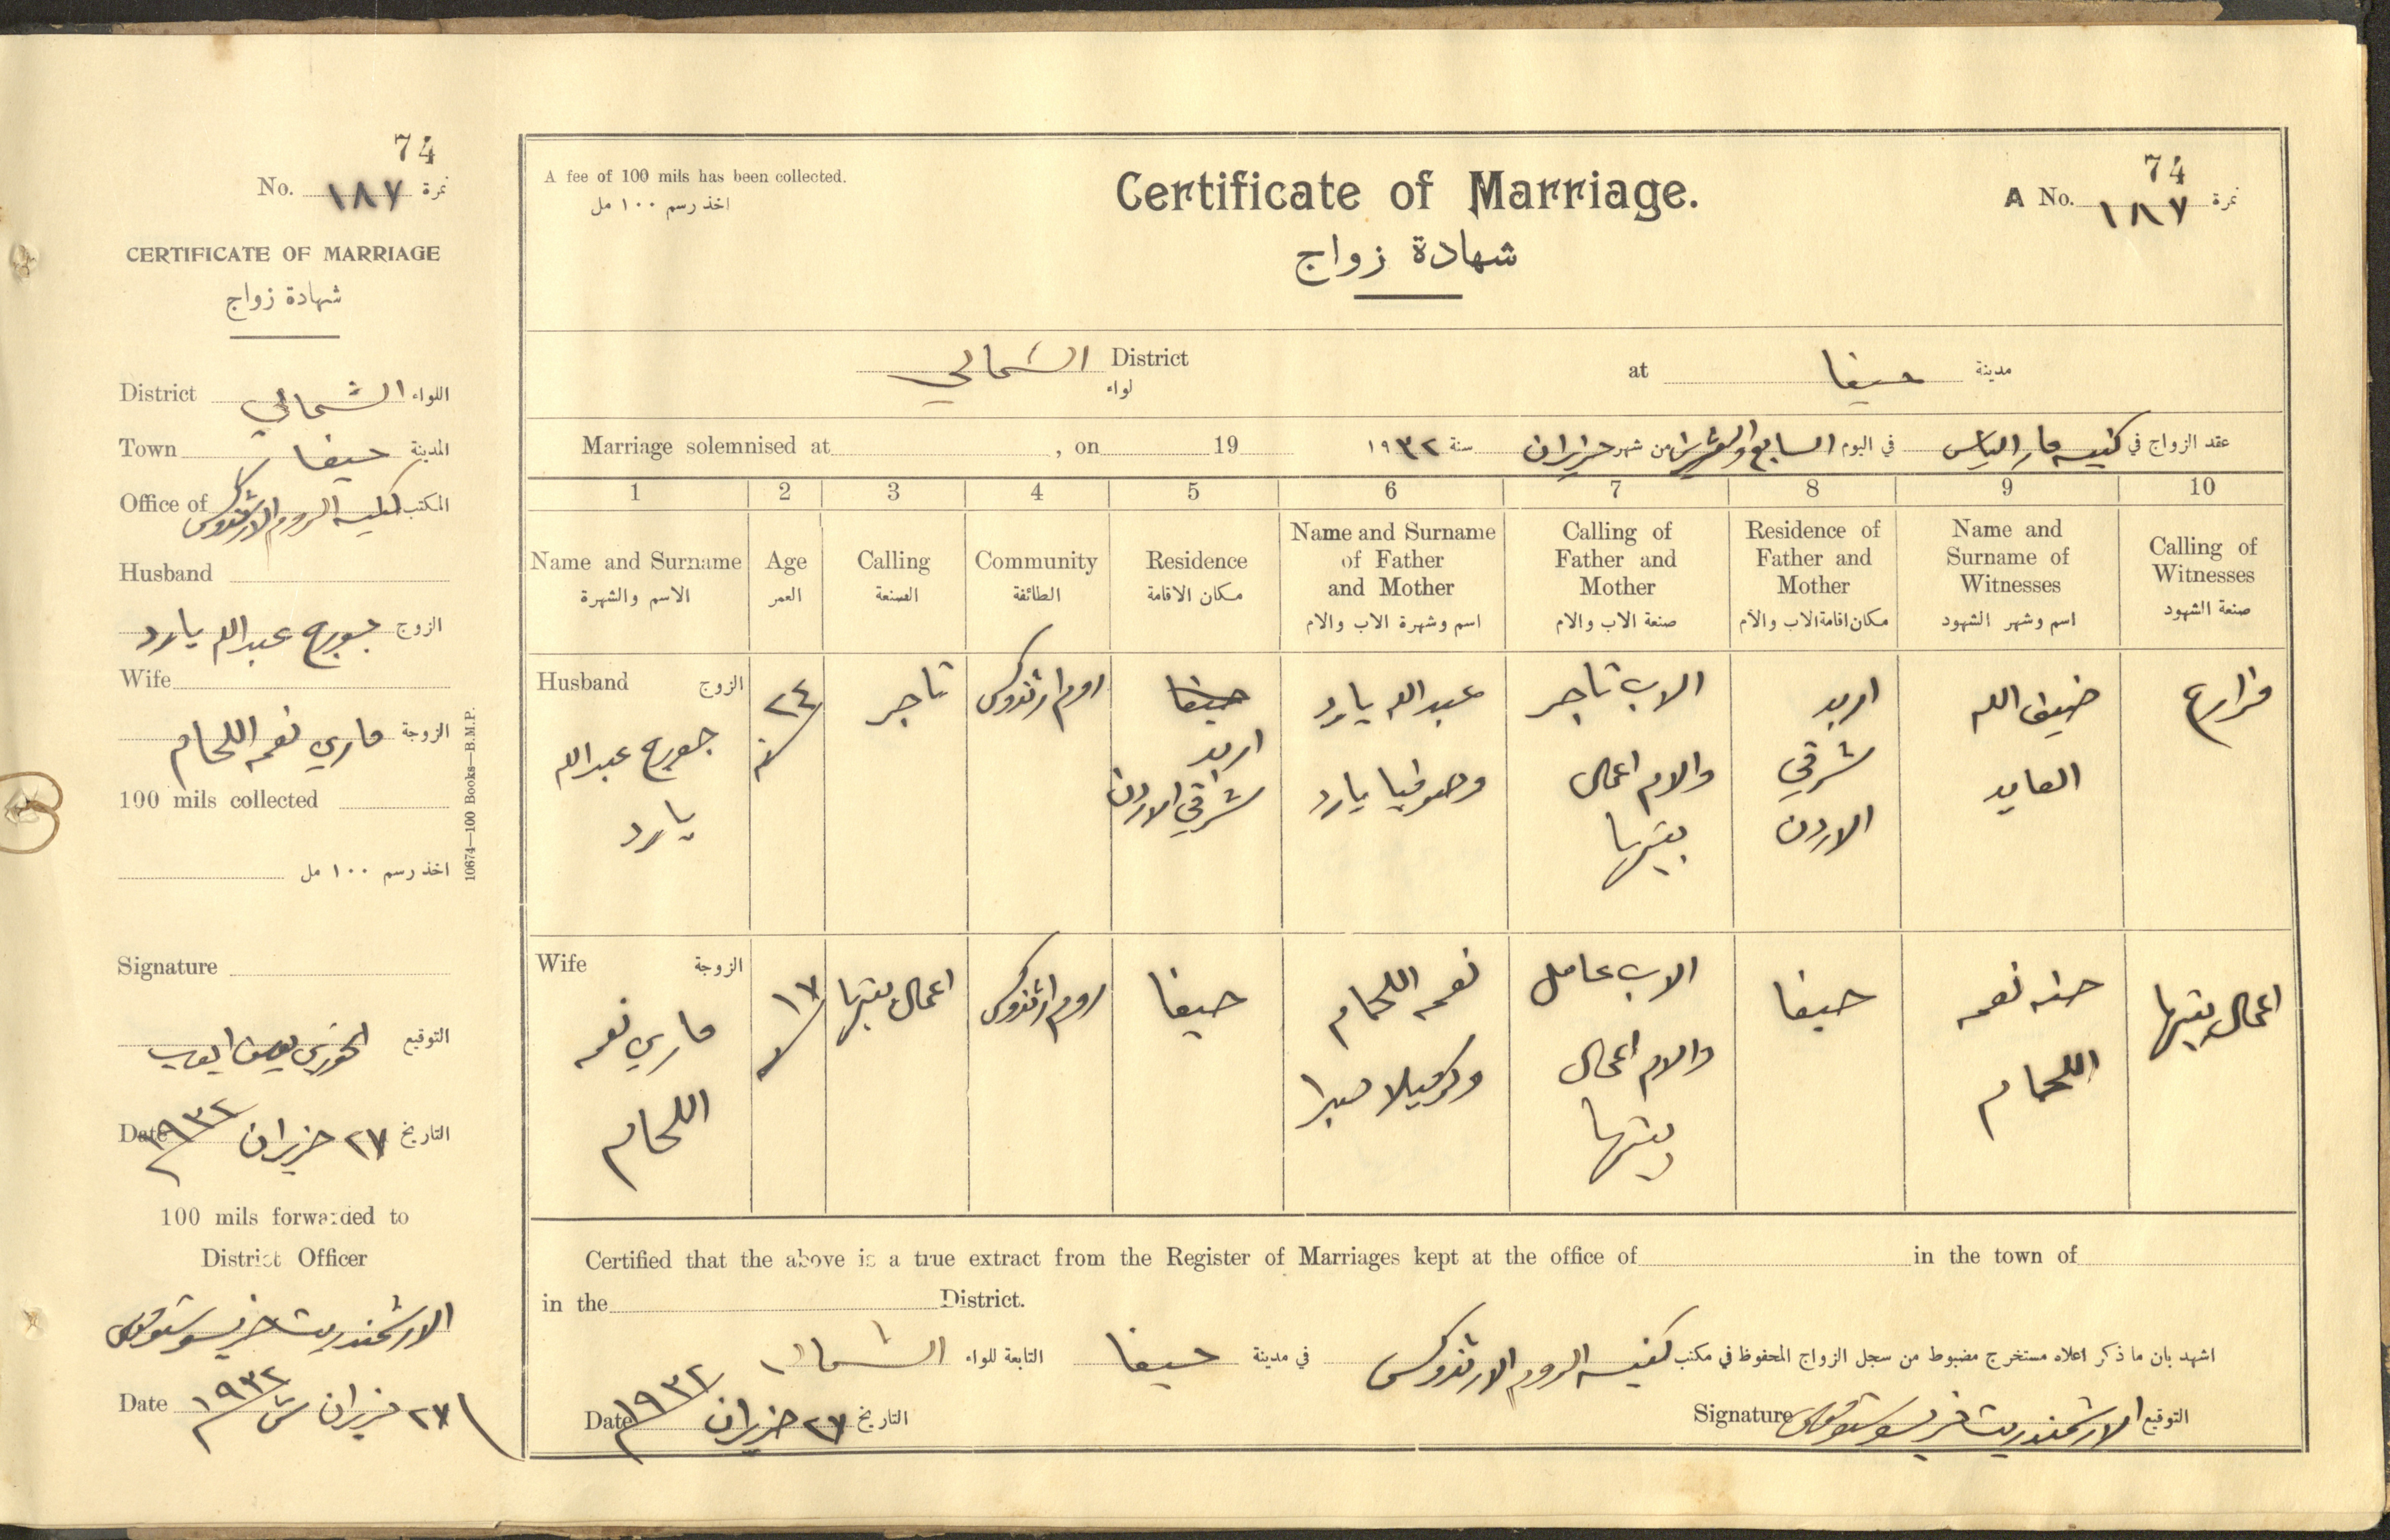 74
No. ١٨٧ نمرة
CERTIFICATE OF MARRIAGE
شهادة زواج
District الشمالي اللواء
Town حيفا المدينة
Office of كنيسة الروم الارثذوكس المكتب
Husband
جورج عبدالله يارد الزوج
Wife
ماري نعمه اللحام الزوجة
100 mils collected
اخذ رسم ١٠٠ مل
Signature
الخوري يوسف ايوب التوقيع
Date ٢٧ حزيران ١٩٣٢ التاريخ
100 mils forwarded to
District Officer
الارشمندريت
Date ٢٧ حزيران ١٩٣٢
10674—100 Books—B.M.P.
A fee of 100 mils has been collected.
اخذ رسم ١٠٠ مل
Certificate of Marriage.
شهادة زواج
74
A No. ١٨٧ نمرة
الشمالي District
لواء
at حيفا مدينة
Marriage solemnised at , on 19
عقد الزواج في كنيسه مار الياس في اليوم السابع والعشرين من شهر حزيران سنة ١٩٣٢
1 2 3 4 5 6 7 8 9 10
Name and Surname
الاسم والشهرة
Age
العمر
Calling
الصنعة
Community
الطائفة
Residence
مكان الاقامة
Name and Surname
of Father
and Mother
اسم وشهرة الاب والام
Calling of
Father and
Mother
صنعة الاب والام
Residence of
Father and
Mother
مكان اقامة الاب والأم
Name and
Surname of
Witnesses
اسم وشهر الشهود
Calling of
Witnesses
صنعة الشهود
Husband الزوج
جورج عبدالله
يارد
٢٤
سنة
تاجر
روم ارثذوكس
حيفا
اربد
شرقي الاردن
عبدالله يارد
وصوفيا يارد
الاب تاجر
والام اعمال
بيتها
اربد
شرقي
الاردن
ضيف الله
العايد
مزارع
Wife الزوجة
ماري نعمه
اللحام
١٧
اعمال بيتها
روم ارثذوكس
حيفا
نعمه اللحام
وكرميلا صبرا
الاب عامل
والام اعمال
بيتها
حيفا
حنه نعمه
اللحام
اعمال بيتها
Certified that the above is a true extract from the Register of Marriages kept at the office of in the town of
in the District.
اشهد بان ما ذكر اعلاه مستخرج مضبوط من سجل الزواج المحفوظ في مكتب كنيسه الروم الارثذوكس في مدينة حيفا التابعة للواء الشمالي
Date ٢٧ حزيران ١٩٣٢ التاريخ
Signature الارشمندريت التوقيع